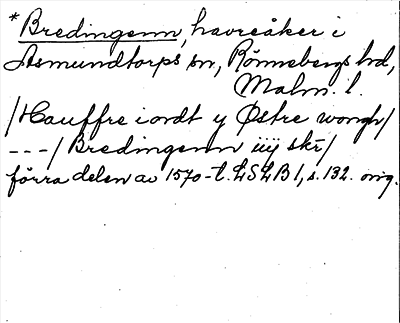 *Bredingenn, havreåker i
Asmundtorps sn, Rönnebergs hd,
Malm. l.
/Hauffre iordt y Østre wongh/
---/Bredingenn iiij skr/
förra delen av 1570-t. LSLB 1, s. 132. orig.